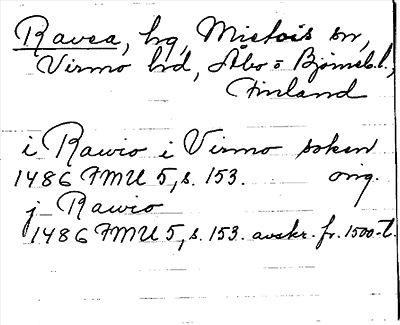 Ravea, hg, Mietois sn,
Virmo hd, Åbo = Björneb. l.,
Finland
i Rawio i Virmo soken
1486 FMU 5, s. 153. orig.
j Rawio
1486 FMU 5, s. 153. avskr. fr. 1500-t.